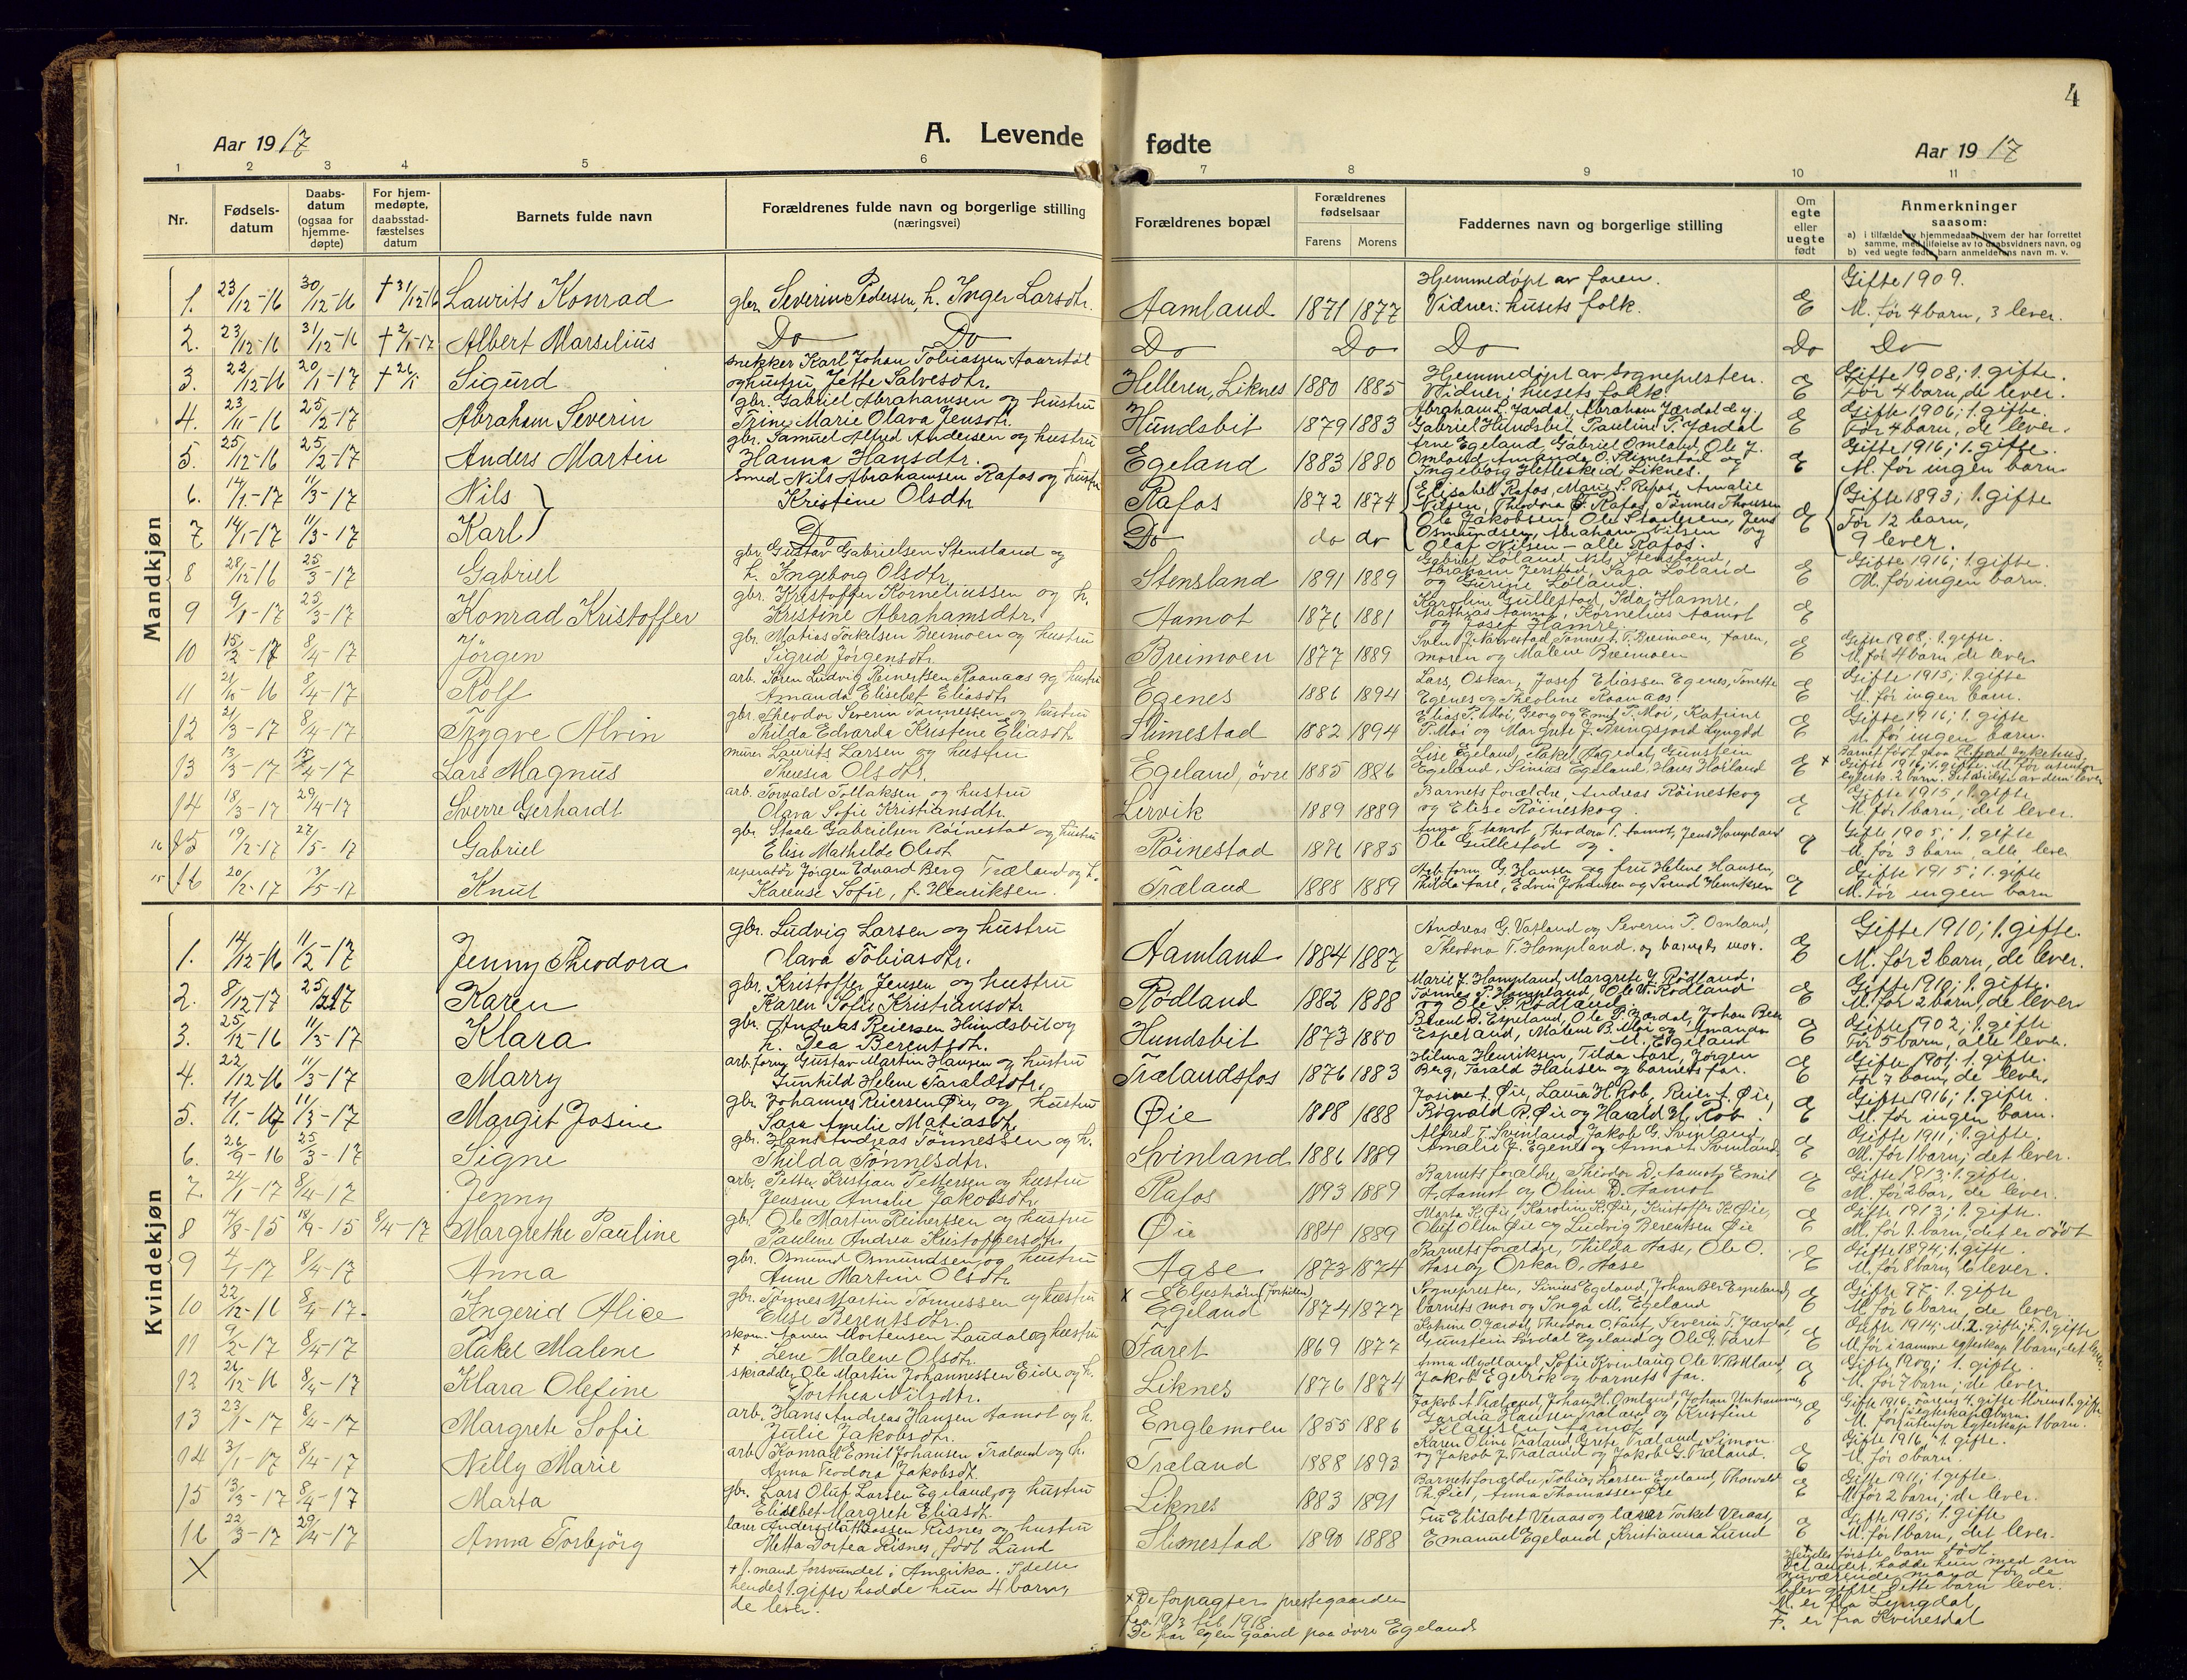 4
Aar 1917
A. Levende
fødte
Aar 1917
1 2 3 4 5 6 7 8 9 10 11
Nr.
Fødsels-
datum
Daabs-
datum
(ogsaa for
hjemme-
døpte)
For hjem-
medøpte,
daabsstad-
fæstelses
datum
Barnets fulde navn
Forældrenes fulde navn og borgerlige stilling
(næringsvei)
Forældrenes bopæl
Forældrenes
fødselsaar
Farens Morens
Faddernes navn og borgerlige stilling
Om
egte
eller
uegte
født
Anmerkninger
saasom:
a) i tilfælde av hjemmedaab, hvem der har forrettet
samme, med tilføielse av to daabsvidners navn, og
b) ved uegte fødte barn anmelderens navn m. v.
Mandkjøn
1. 23/12-16 30/12-16 † 31/12-16 Laurits Konrad gbr. Severin Pedersen, h. Inger Larsdtr. Aamland 1871 1877 Hjemmedøpt av faren.
Vidner: husets folk. E Gifte 1909.
M. før 4 barn, 3 lever.
2. 23/12-16 31/12-16 † 2/1-17 Albert Marselius Do Do Do Do Do Do Do
3. 22/12-16 20/1-17 † 26/1 Sigurd snekker Karl Johan Tobiassen Aaarstøl
og hustru Jette Salvesdtr. Helleren, Liknes 1880 1885 Hjemmedøpt av sognepresten.
Vidner: husets folk. E Gifte 1908; 1. gifte.
Før 4 barn, de lever.
4. 23/11-16 25/2-17 Abraham Severin gbr. Gabriel Abrahamsen og hustru
Trine Marie Olava Jensdtr. Hundsbit 1879 1883 Abraham L. Jærdal, Abraham Jærdal d.y.
Gabriel Hundsbit, Pauline P. Jærdal E Gifte 1906; 1. gifte.
Før 4 barn, de lever.
5. 25/12-16 25/2-17 Anders Martin gbr. Samuel Alfred Andersen og hustru
Hanna Hansdtr. Egeland 1883 1880 Arne Egeland, Gabriel Omland, Ole J.
Omland, Amanda O. Slimestad og
Ingeborg Helleskeid, Liknes. E Gifte 1916; 1. gifte.
M. før ingen barn
6. 14/1-17 11/3-17 Nils smed Nils Abrahamsen Rafos og hustru
Kristine Olsdtr. Rafos 1872 1874 Elisabet Rafos, Marie S. Rafos, Amalie
Nilsen, Theodora T. Rafos, Tønnes Thomsen E Gifte 1893; 1. gifte
7 14/1-17 11/3-17 Karl Do Do do do Ole Jakobsen, Ole Staalesen, Jens
Osmundsen, Abraham Nilsen og
Olaf Nilsen – alle Rafos. Før 12 barn,
9 lever.
8 28/12-16 25/3-17 Gabriel gbr Gustav Gabrielsen Stensland og
h. Ingeborg Olsdtr. Stensland 1891 1889 Gabriel Løland, Nils Stensland,
Abraham Jerstad, Sara Løland
og Gurine Løland. E Gifte 1916; 1. gifte.
M. før ingen barn.
9 9/1-17 25/3-17 Konrad Kristoffer gbr. Kristoffer Korneliussen og h.
Kristine Abrahamsdtr. Aamot 1876 1881 Karoline Gullestad, Ida Hamre,
Mathias Aamot, Kornelius Aamot
og Josef Hamre. E
10 15/2-17 8/4-17 Jörgen gbr. Matias Torkelsen Breimoen og hustru
Sigrid Jørgensdtr. Breimoen 1877 1889 Sven J. Narvestad, Tønnes T. Breimoen, faren,
moren og Malene Breimoen E Gifte 1908; 1. gifte.
M. før 4 barn, de lever
11 21/10-16 8/4-17 Rolf arb. Søren Ludvig Reinertsen Raanaas og hustru
Amanda Elisebet Eliasdtr. Egenes 1886 1894 Lars, Oskar, Josef Eliassen Egenes, Tønette
Egenes og Theoline Raanaas. E Gifte 1915; 1. gifte
M. før ingen barn.
12 21/3-17 8/4-17 Trygve Alvin gbr. Theodor Severin Tønnessen og hustru
Thilda Edvarda Kristene Eliasdtr. Slimestad 1882 1894 Elias P. Moi, Georg og Emil P. Moi, Katrine
P. Moi og Margrete J. Rungsjord Lyngdal E Gifte 1916; 1. gifte
M. før ingen barn.
13 13/3-17 15/4-17 Lars Magnus murer Laurits Larsen og hustru
Theresia Olsdtr. Egeland, øvre 1885 1886 Lise Egeland, Rakel Øagedal, Gunstein
Egeland, Sinius Egeland, Hans Høiland E × Barnet født paa Fl.fjord sykehus.
Gifte 1916; 1. gifte. M. før utenfor
egtesk. 2 barn. Det sidste av dem lever
14 18/3-17 29/4-17 Sverre Gerhardt arb. Torvald Tollaksen og hustru
Olava Sofie Kristiansdtr. Lervik 1889 1889 Barnets forældre, Andreas Røineskog
og Elise Røineskog. E Gifte 1915; 1. gifte
M. før 1 barn; det lever.
16 15 19/2-17 27/5-17 Gabriel gbr Staale Gabrielsen Röinestad og hustru
Elise Mathilde Olsdt Röinestad 1886 1885 Anna T. Aamot, Theodora T. Aamot, Jens Hompland
Ole Gullestad og . E Gifte 1905; 1. gifte
M. før 3 barn, alle lever
15 16 20/2-17 13/5-17 Knut reperatør Jörgen Edvard Berg Træland og h.
Karense Sofie, f. Henriksen. Træland 1888 1889 Arb.form. G. Hansen og fru Helene Hansen,
Thilda Aase, Edvin Johansen og Svend Henriksen E Gifte 1915; 1. gifte
M. før ingen barn
Kvindekjøn
1. 14/12-16 11/2-17 Jenny Theodora gbr. Ludvig Larsen og hustru
Olava Tobiasdtr. Aamland 1884 1887 Andreas G. Vatland og Severin P. Omland,
Theodora T. Hompland og barnets mor. E Gifte 1910; 1. gifte.
M. før 2 barn, de lever.
2. 8/12-17 25/2-17 Karen gbr. Kristoffer Jensen og hustru
Karen Sofie Kristiansdtr Rødland 1882 1888 Marie J. Hompland, Margrete J. Rødland,
Tønnes P. Hompland, Ole V. Rødland
og Ole S. Rødland. E Gifte 1910; 1. gifte.
M. før 2 barn, de lever
3. 25/12-16 11/3-17 Klara gbr. Andreas Reiersen Hundsbit og
h. Dea Berentsdtr. Hundsbit 1873 1880 Berent D. Espeland, Ole P. Jærdal, Johan Ber.
Espeland, Malene B. Moi og Amanda
M. Egeland E Gifte 1902; 1. gifte
Før 5 barn, alle lever.
4. 22/12-16 11/3-17 Marry arb.form. Gustav Martin Hansen og hustru
Gunhild Helene Taraldsdtr. Trælandsfos 1876 1883 Hilma Henriksen, Tilda Aase, Jørgen
Berg, Tarald Hansen og barnets far. E Gifte 1901; 1. gifte.
Før 7 barn, de lever.
5. 11/1-17 11/3-17 Margit Josine gbr. Johannes Reiersen Øie, og hustru
Sara Amelie Matiasdtr. Øie 1888 1888 Josine A. Øie, Laura H. Rob, Reier A. Øie,
Bøgvald R. Øie og Harald H. Rob. E Gifte 1916; 1. gifte.
M. før ingen barn.
6. 26/9-16 25/3-17 Signe gbr. Hans Andreas Tønnessen og h.
Thilda Tønnesdtr. Svinland 1886 1889 Alfred T. Svinland, Jakob G. Svinland,
Amalie J. Egenes og Anna T. Svinland E Gifte 1911; 1. gifte
M. før 1 barn; det lever.
7. 24/1-17 8/4-17 Jenny arb. Petter Kristian Pettersen og hustru
Jensine Amalie Jakobsdtr. Rafos 1893 1889 Barnets forældre, Theodor D. Aamot, Emil
A. Aamot og Oline D. Aamot E Gifte 1913; 1. gifte.
M. før 2 bar, de lever.
8 14/8-15 18/9-15 8/4-17 Margrethe Pauline gbr. Ole Martin Reinertsen og hustru
Pauline Andrea Kristoffersdtr. Øie 1884 1889 Marta K. Øie, Karoline K. Øie, Kristoffer K. Øie,
Oluf Olsen Øie og Ludvig Berentsen Øie E Gifte 1913; 1. gifte.
M. før 1. barn; det er dödt
9 4/1-17 8/4-17 Anna gbr. Osmund Osmundsen og hustru
Anne Martine Olsdtr Aase 1873 1874 Barnets forældre, Thilda Aase, Ole O.
Aase og Oskar O. Aase E Gifte 1894; 1. gifte.
M. før 8 barn, 6 lever.
10 22/12-16 8/4-17 Ingerid Alice gbr. Tønnes Martin Tønnessen og hustru
Elise Berentsdtr. × Eljestrøm (Jortiden)
Egeland 1874 1877 Sognepresten, Sinius Egeland, Johan Ber Espeland,
barnets mor og Inga M. Egeland E Gifte 97; 1. gifte
M. før 6 barn, de lever.
11 9/2-17 8/4-17 Rakel Malene skom. Aanen Mortensen Laudal og hustru
† Lene Malene Olsdtr. Faret 1869 1877 Katrine O. Jærdal, Theodora O. Faret, Severin T. Jærdal,
Gunstein Lordal Egeland og Ole G. Faret E Gifte 1914; M. 2. gifte; F. 1. gifte
M. før i samme egteskap 1 barn, det lever
12 26/12-16 8/4-17 Klara Olefine skrædder Ole Martin Johannessen Eide og h.
Torthea Nilsdtr. Liknes 1876 1874 Anna Mydland, Sofie Kvinlaug, Ole V. Rødland,
Jakob Egebrok og barnets far. E Gifte 1900; 1. gifte.
M. før 7 barn; de lever.
13 23/1-17 8/4-17 Margrete Sofie arb. Hans Andreas Hansen Aamot og h.
Julie Jakobsdtr. Englemoen 1855 1886 Jakob A. Træland, Johan H. Omland, Johan Unhammer,
Gardia Hansen Træland og Kristine
Klausen Aamot E Gifte 1916. Farens 4. gifte. Morens 1. gifte
M. før i egteskap 0 barn.
M. før utenfor egteskap 1 barn.
14 3/1-17 8/4-17 Nelly Marie arb. Konrad Emil Johansen Træland og h.
Anna Teodora Jakobsdt. Træland 1888 1893 Karen Oline Træland, Grete Træland, Simon
og Jakob J. Træland og Jakob G. Træland. E Gifte 1916; 1. gifte.
M. før 0 barn.
15 13/3-17 8/4-17 Marta gbr. Lars Oluf Larsen Egeland og hustru
Elisebet Margrete Eliasdt. Liknes 1883 1891 Barnets forældre, Tobias Larsen Egeland, Thorvald
Th. Øie, Anna Thomassen Øie E Gifte 1911; 1. gifte.
M. før 2 barn; de lever.
16 22/3-17 29/4-17 Anna Torbjörg lærer Anders Mathiassen Risnes og hustru
Metta Dortea Risnes, født Lund Slimestad 1890 1888 Fru Elisabet Veraas og lærer Torkel Veraas,
Emanuel Egeland, Kristianna Lund E Gifte 1915; 1. gifte
M. før 1 barn, det lever.
× † 1. mand forsvundet i Amerika. I dette
hendes 1. gifte hadde hun 4 barn,
de lever.
× De forpagter prestegaarden
fra 1913 til 1918.
De har egen gaard paa øvre Egeland
Hendes første barn født.
Det andet hadde hun med sin
nuværende mand før de
blev gifte. Dette barn lever.
M. er fra Lyngdal
F. er fra Kvinesdal